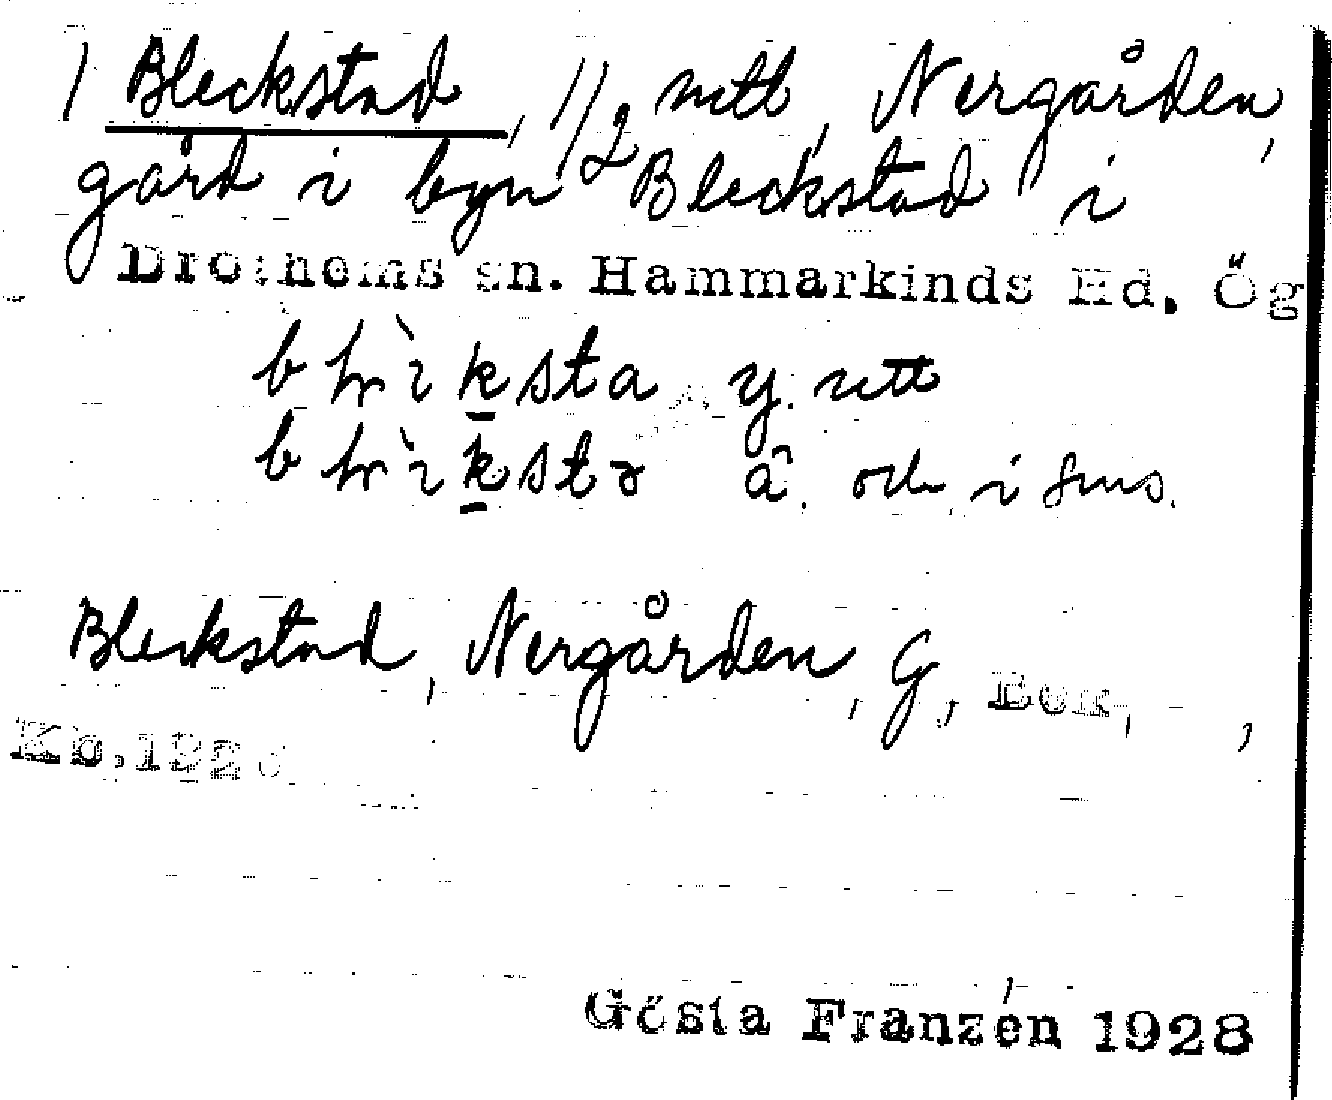 1 Bleckstad, 1/2 mtl, Nergården,
gård i byn Bleckstad i
Drothems sn. Hammarkinds Hd. Ög
y.
å. och i sms.
Bleckstad, Nergården, G, Bek, - ,
Kb. 192
Gösta Franzén 1928